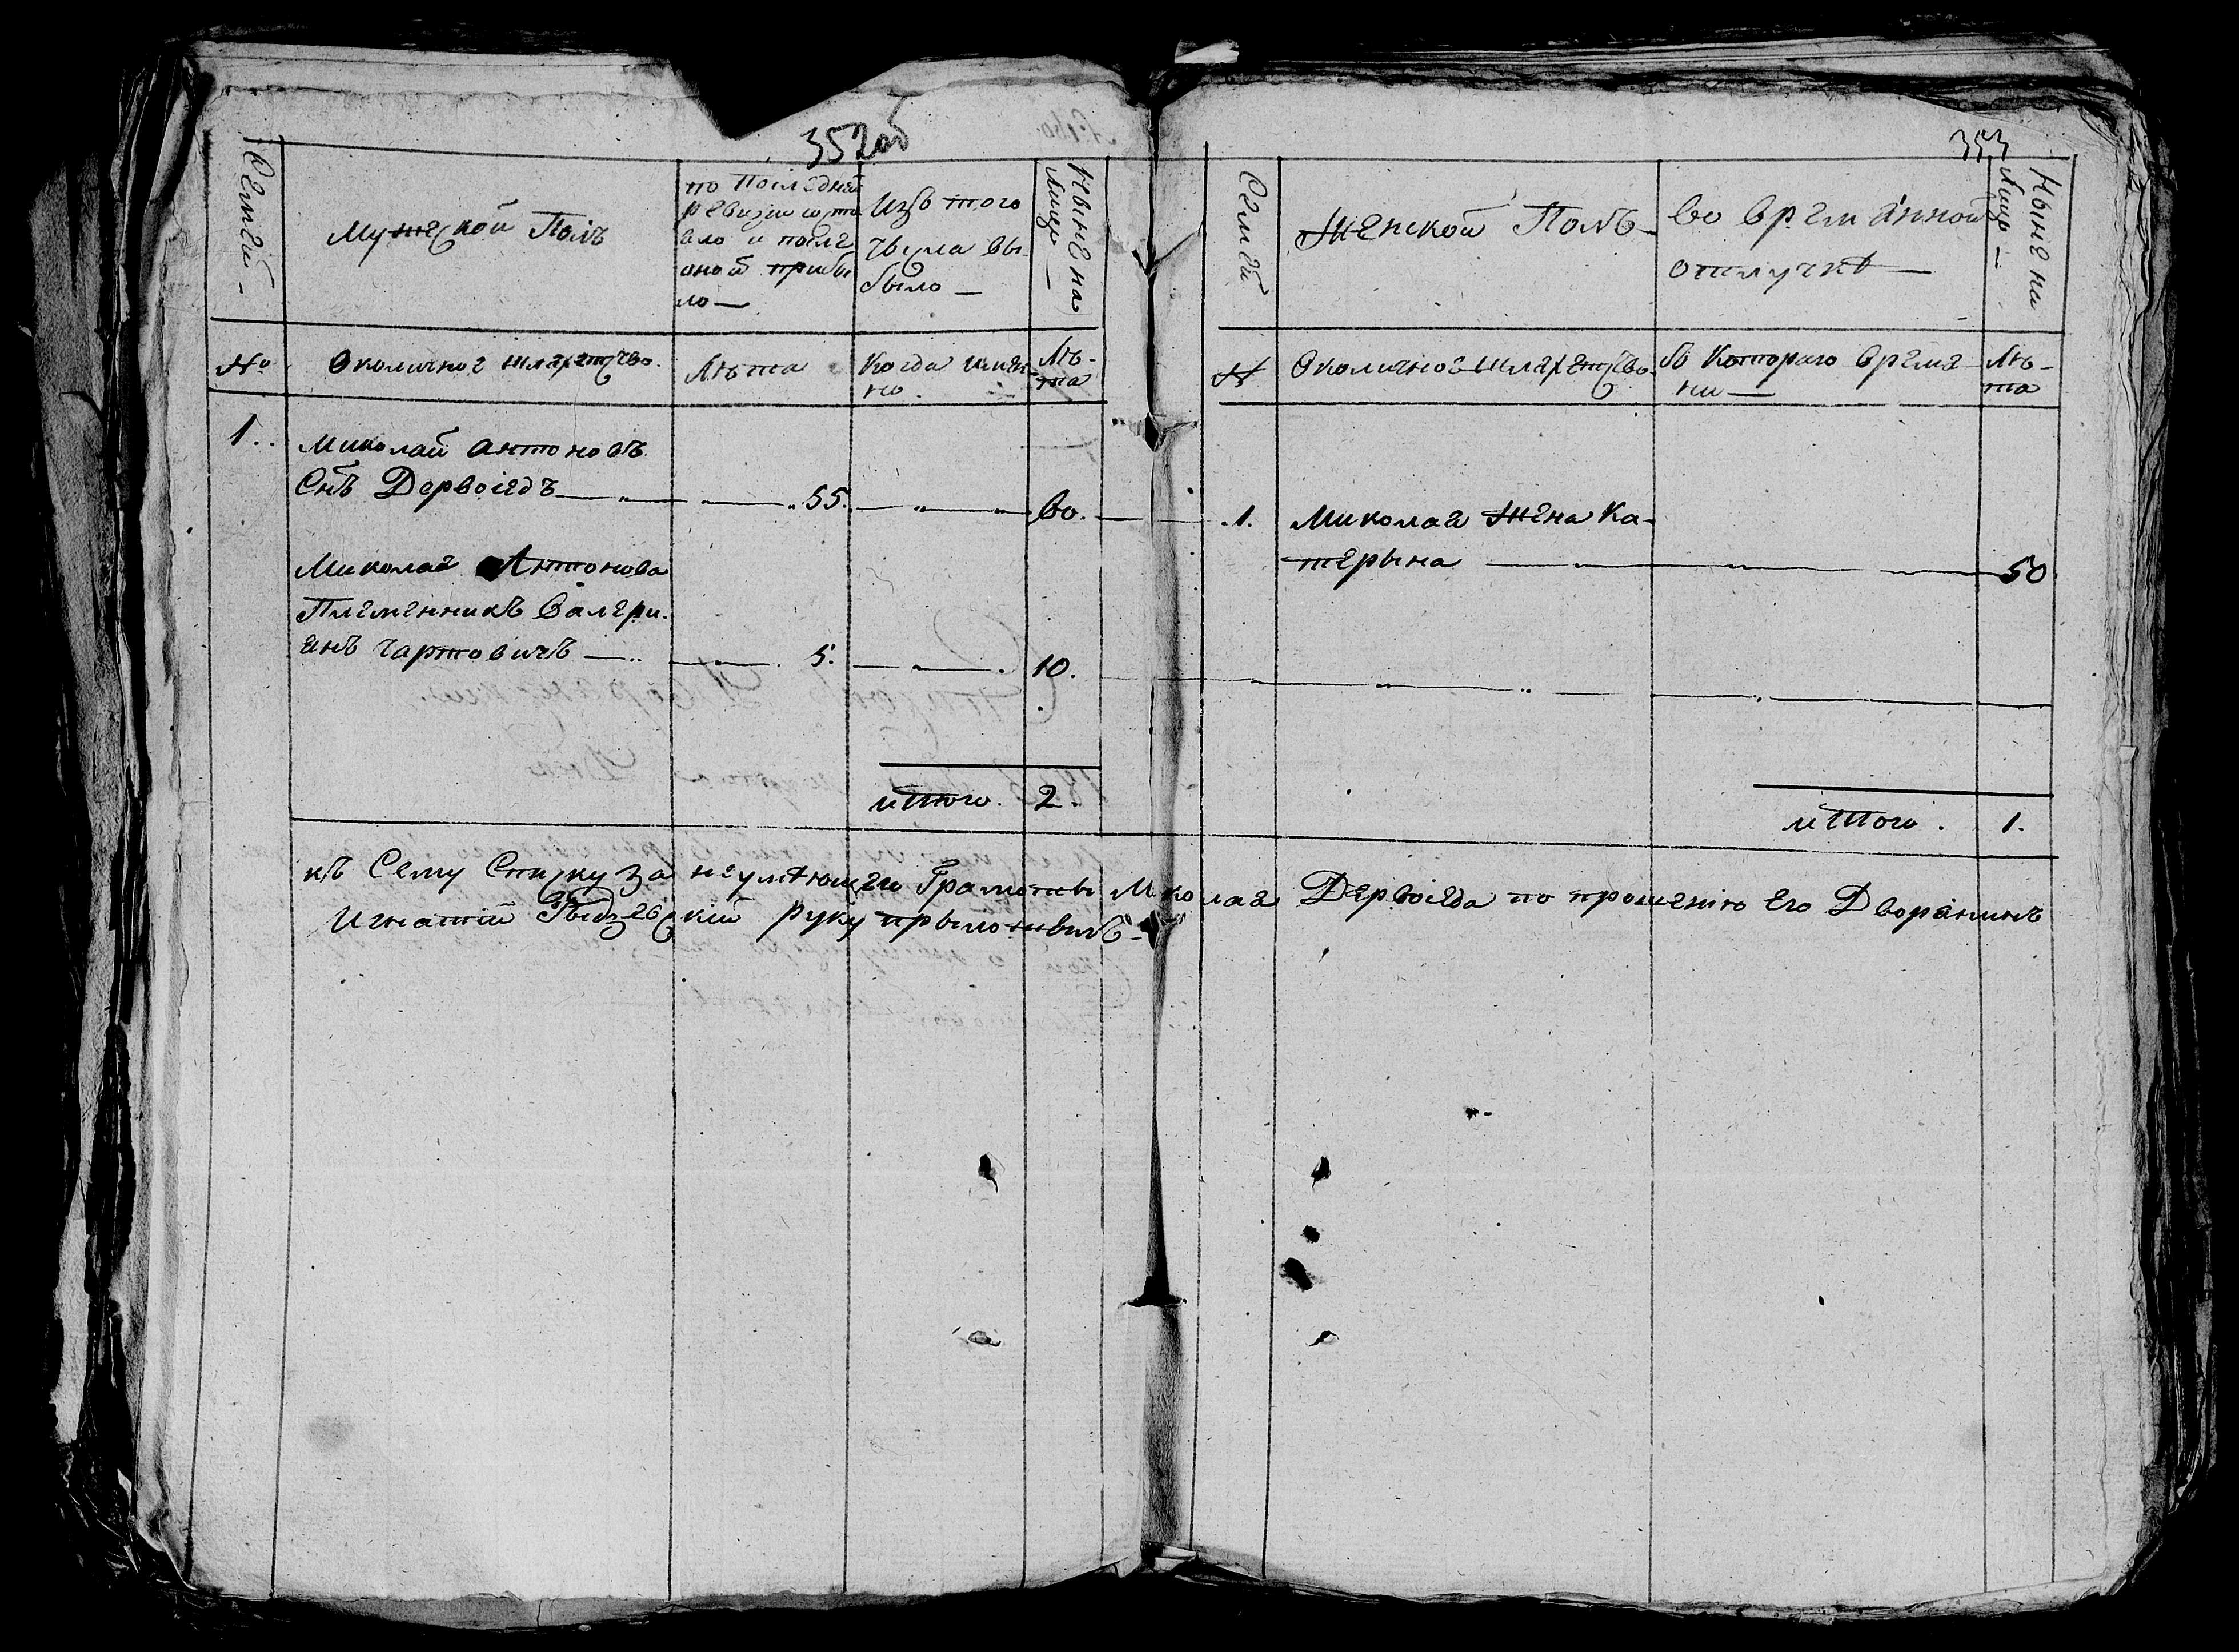 352об
Семей
Мужеской Полъ
по последней
ревизии состо
яло и после
оной прибы
ло
Изъ того
числа вы
было
Ныне на
лицо
№
Околичное шляхетство.
Лѣта
Когда имян
но.
Лѣ-
та
1.
Миколай Антоновъ
Снъ Дервоедъ 55. 60.
Миколая Антонова
Племенникъ Валери-
янъ Чартовичъ 5. 10.
итого. 2.
353
Семей
Женской Полъ
во времянной
отлучкѣ
Ныне на
лицо
№
Околичное шляхетство
Съ Котораго время
ни
Лѣ-
та
1. Миколая Жена Ка-
терына 50
итого. 1.
къ Сему Списку за неумеющего Грамоты Миколая Дервоеда по прошению Его Дворанинъ
Игнатий руку прыложилъ